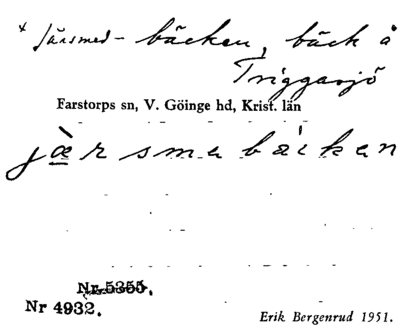 * Järsmed-bäcken, bäck å
Triggasjö
Farstorps sn, V. Göinge hd, Krist. län
jæ̀rsmebäkən
Nr 5355.
Nr 4932.
Erik Bergenrud 1951.